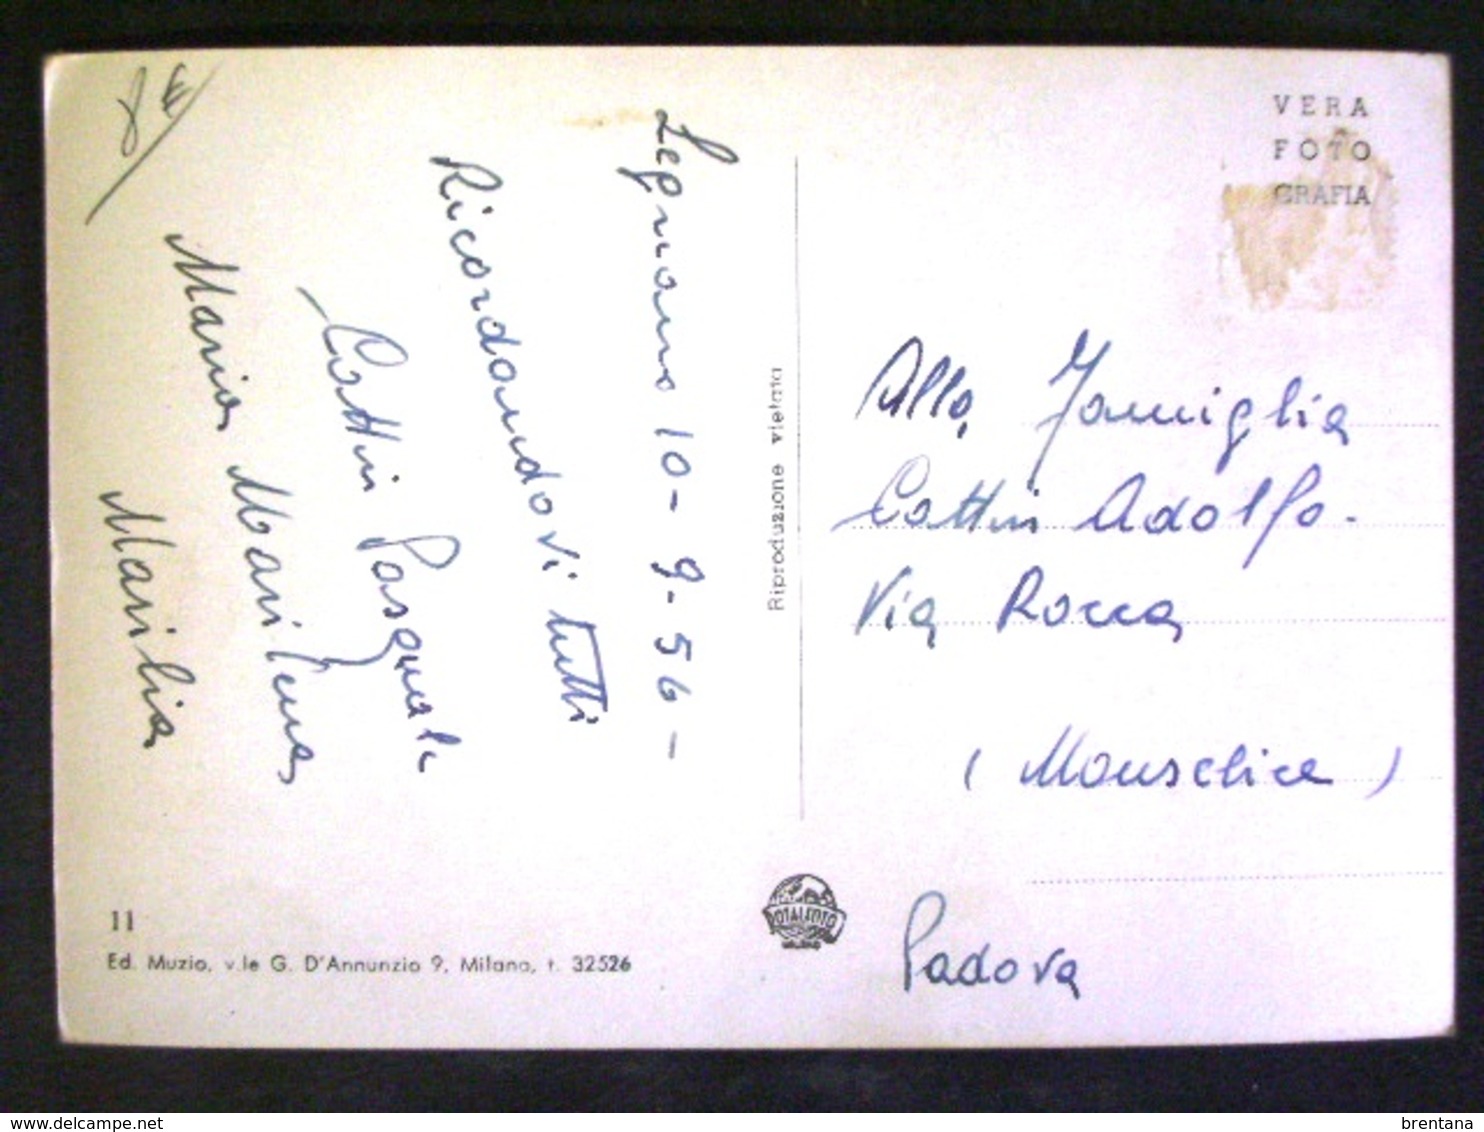 Legnano 10-9-56-
Ricordandovi tutti
Cattin Pasquale
Maria Marilena
Marilia
11
Ed. Muzio, v.le G. D'Annunzio 9, Milano, t. 32526
Riproduzione vietata
VERA
FOTO
GRAFIA
Alla Famiglia
Cattin Adolfo.
Via Rocca
(Monselice)
Padova
ROTALFOTO
MILANO
brentana